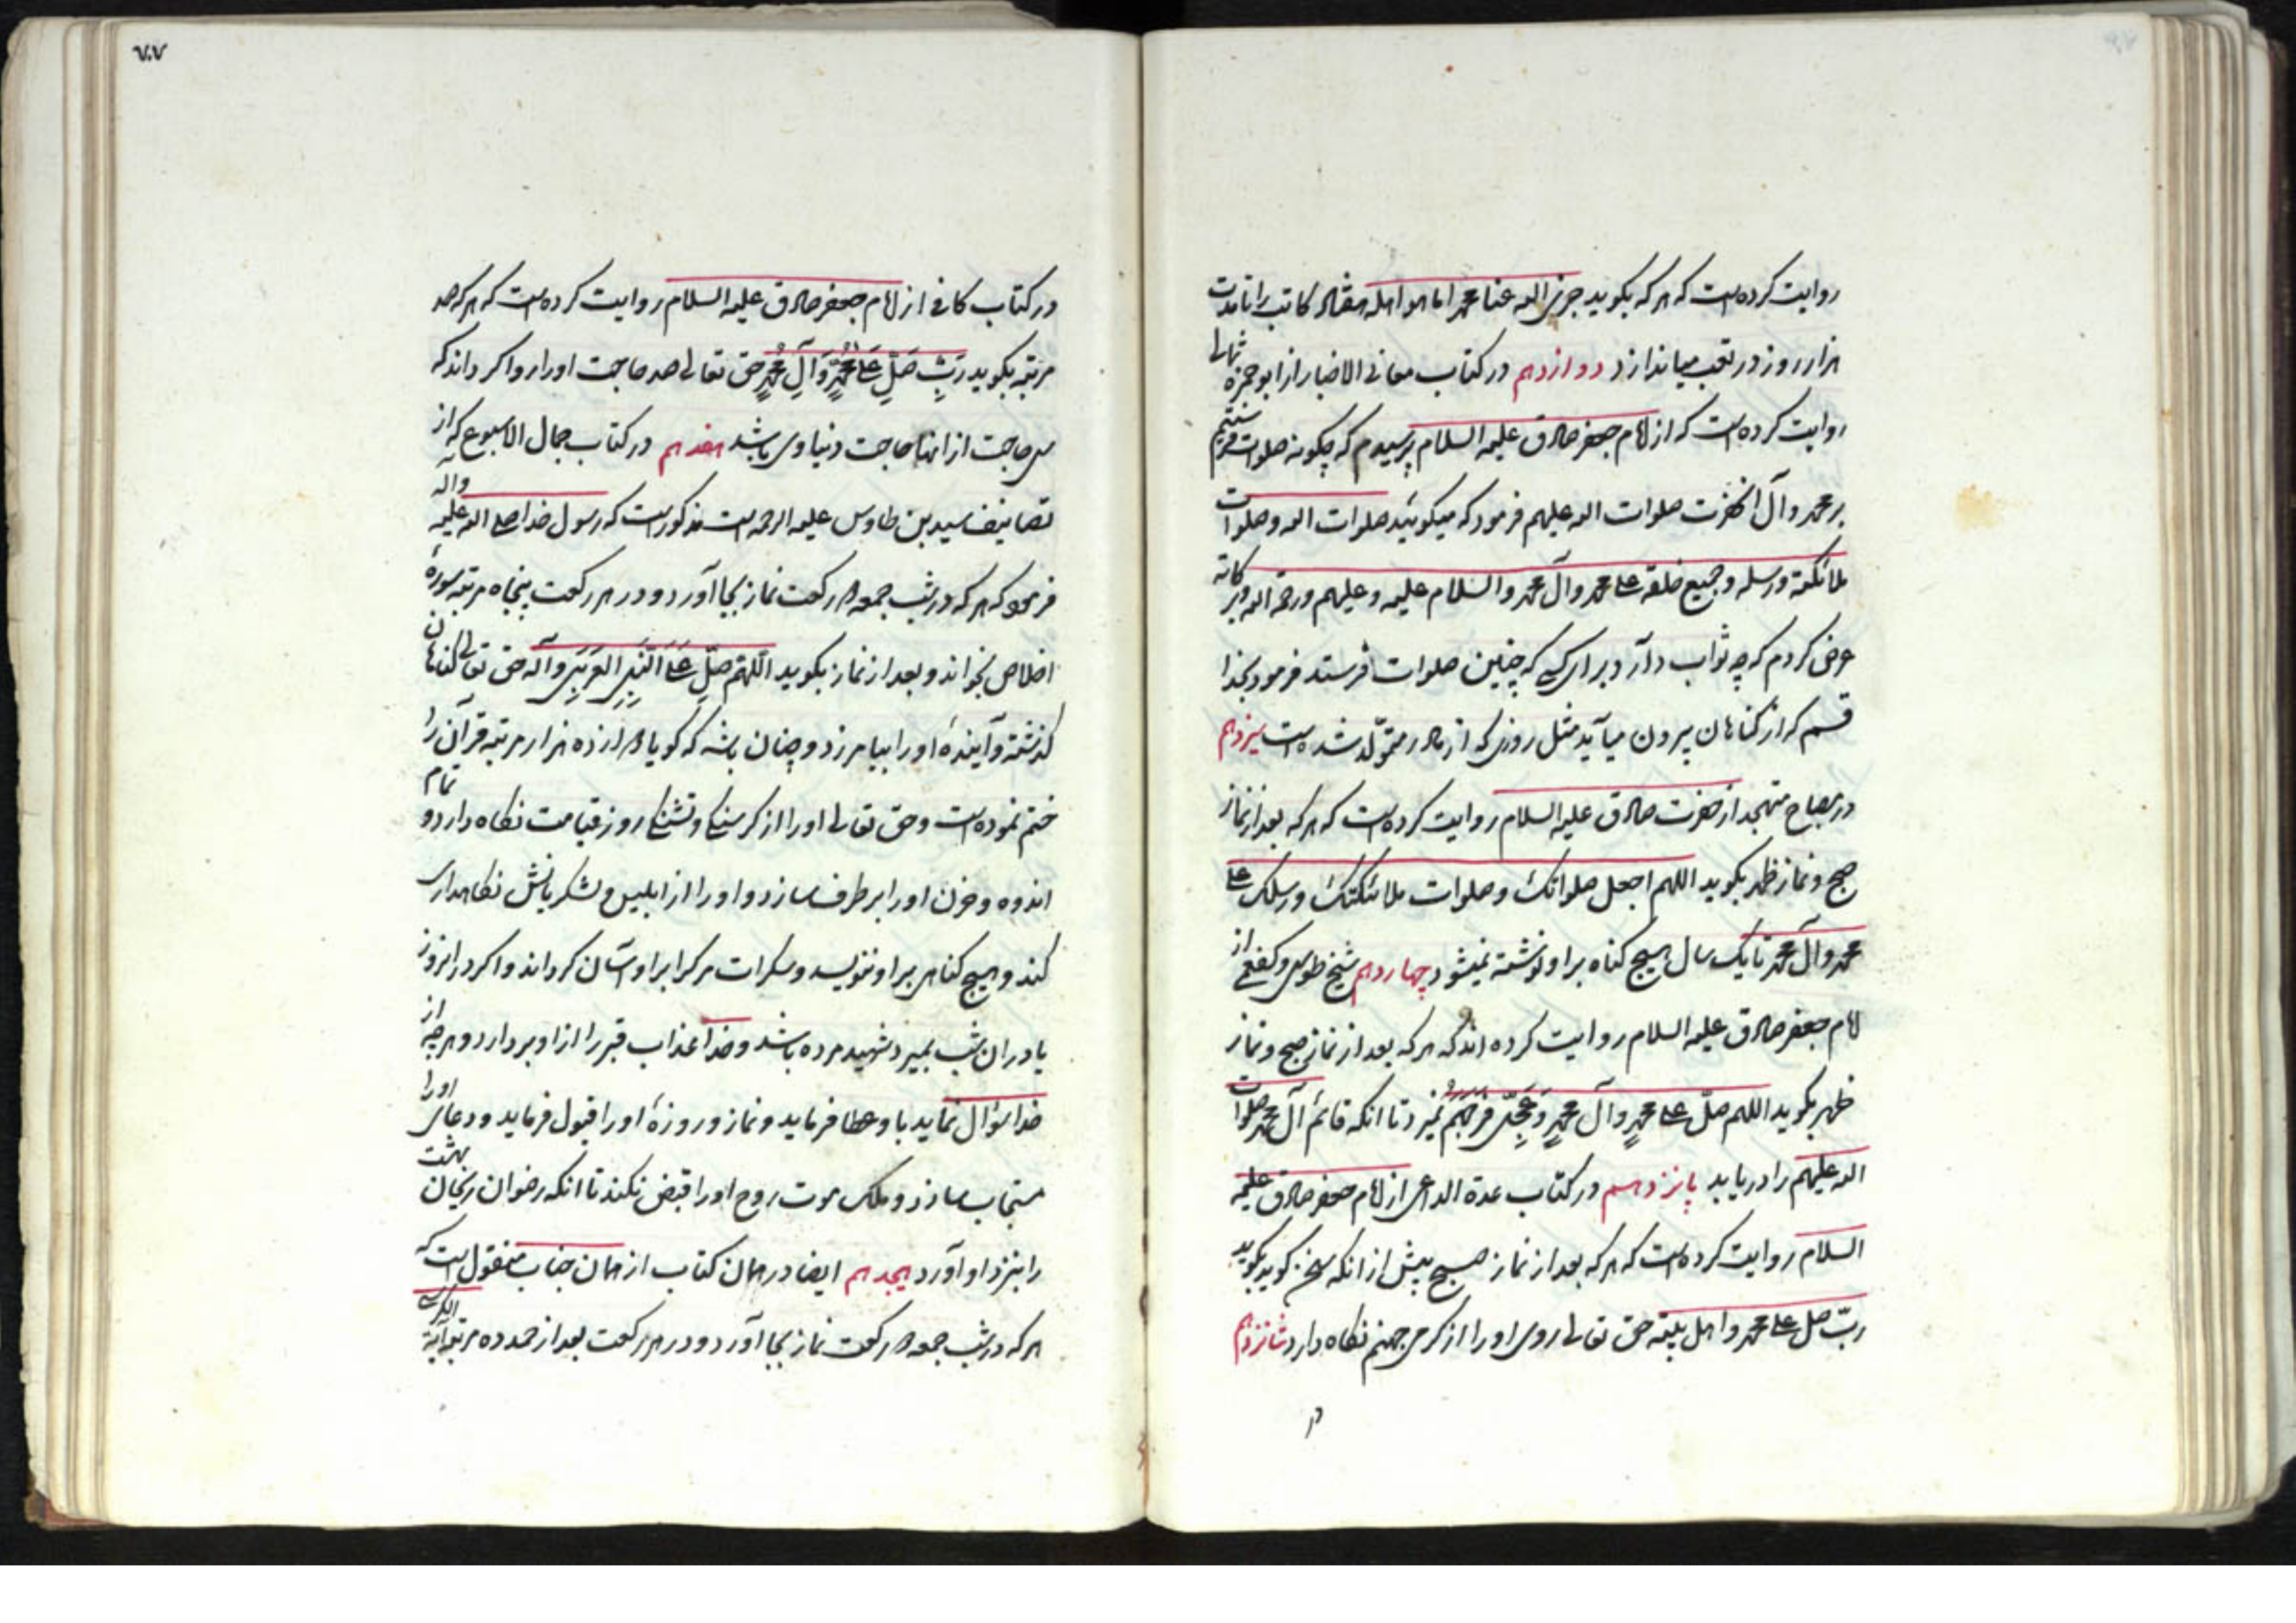 روایت کرده است که هر که بگوید جزی الله عنا محمدا ما هو اهله هفتاد کاتب را تا مدت
هزار روز در تعب میاندازد دوازدهم در کتاب معانی الاخبار از ابو حمزه ثمالی
روایت کرده است که از امام جعفر صادق علیه السلام پرسیدم که چگونه صلوات فرستیم
بر محمد و آل انحضرت صلوات الله علیهم فرمود که میگوئید صلوات الله و صلوات
ملائکته ورسله و جمیع خلقه علی محمد وآل محمد والسلام علیه و علیهم ورحمة الله وبرکاته
عرض کردم که چه ثواب دارد برای کسی که چنین صلوات فرستد فرمود بخدا
قسم که از کناهان بیرون میآید مثل روزی که از مادر متولّد شده است سیزدهم
در مصباح متهجد از حضرت صادق علیه السلام روایت کرده است که هر که بعد از نماز
صبح و نماز ظهر بگوید اللهم اجعل صلواتک وصلوات ملائکتک ورسلک علی
محمد وآل محمد تا یک سال هیچ کناه بر او نوشته نمیشود چهاردهم شیخ طوسی و کفعمی از
امام جعفر صادق علیه السلام روایت کرده اند که هر که بعد از نماز صبح و نماز
ظهر بگوید اللهم صلّ علی محمدٍ وآل محمدٍ وَعَجِّل فَرَجَهُم نمیرد تا انکه قائم آل محمد صلوات
الله علیهم را دریابد پانزدهم در کتاب عدة الداعی از امام جعفر صادق علیه
السلام روایت کرده است که هر که بعد از نماز صبح پیش از انکه سخن گوید بگوید
ربّ صل علی محمد واهل بیته حق تعالی روی او را از کرمی جهنم نکاه دارد شانزدهم
در
٧٠٧
در کتاب کافی از امام جعفر صادق علیه السلام روایت کرده است که هر که صد
مرتبه بگوید رَبِّ صَلِّ عَلی مُحَمَّدٍ وَآلِ مُحَمَّدٍ حق تعالی صد حاجت او را روا کرداند که
سی حاجت از انها حاجت دنیاوی باشد هفدهم در کتاب جمال الاسبوع که از
تصانیف سید بن طاوس علیه الرحمه است مذکور است که رسول خدا صلی الله علیه واله
فرمود که هر که در شب جمعه دو رکعت نماز بجا آورد و در هر رکعت پنجاه مرتبه سورۀ
اخلاص بخواند و بعد از نماز بگوید اللّهُمَّ صَلِّ عَلَی النَّبِیِّ العَرَبِیِّ وآله حق تعالی کناهان
کذشته و آیندۀ او را بیامرزد و چنان باشد که کویا دوازده هزار مرتبه قرآن را
ختم نموده است و حق تعالی او را از کرسنکی و تشنکی روز قیامت نکاه دارد و تمام
اندوه و حزن او را بر طرف سازد و او را از ابلیس و لشکریانش نکاهداری
کند و هیچ کناهی بر او ننویسد و سکرات مرک را بر او آسان کرداند و اکر در ان روز
یا در ان شب بمیرد شهید مرده باشد و خدا عذاب قبر را از او بردارد و هر چه از
خدا سؤال نماید باو عطا فرماید و نماز و روزۀ او را قبول فرماید و دعای او را
مستجاب سازد و ملک موت روح او را قبض نکند تا انکه رضوان ریحان بهشت
را بنزد او آورد هیجدهم ایضا در همان کتاب از همان جناب منقول است که
هر که در شب جمعه دو رکعت نماز بجا آورد و در هر رکعت بعد از حمد ده مرتبه آیة الکرسی